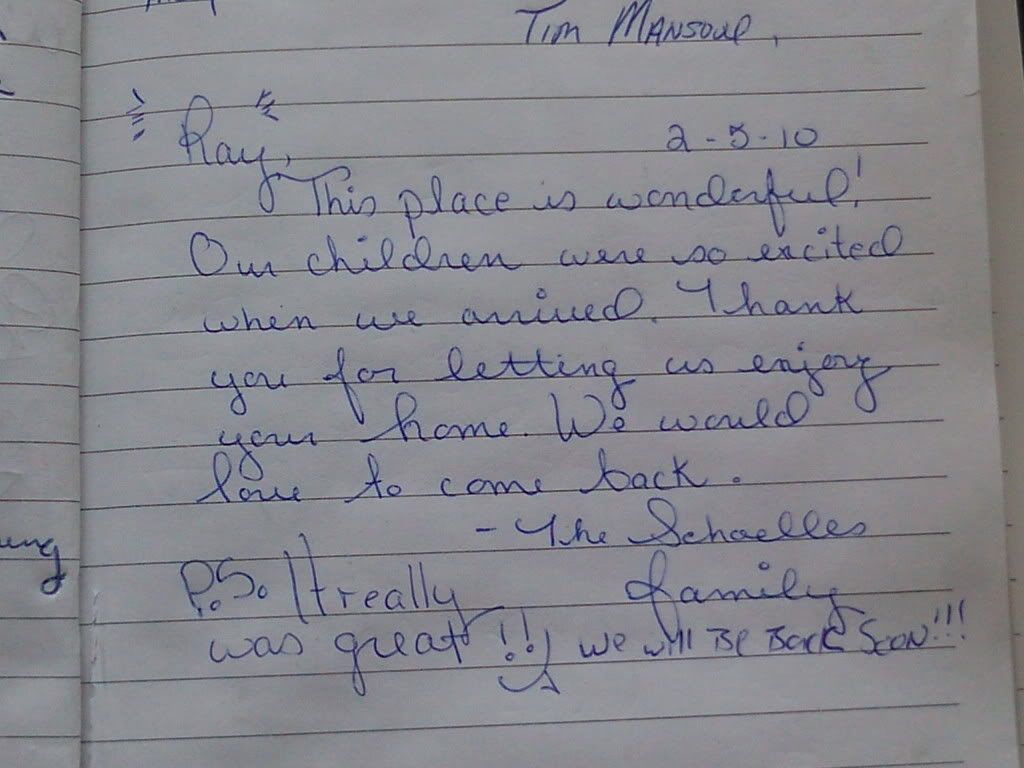 Tim Mansour,
Ray,
2-5-10
This place is wonderful!
Our children were so excited
when we arrived. Thank
you for letting us enjoy
your home. We would
love to come back.
- The Schaelles
family
P.S. It really
was great!!
we will Be Back Soon!!!
ung